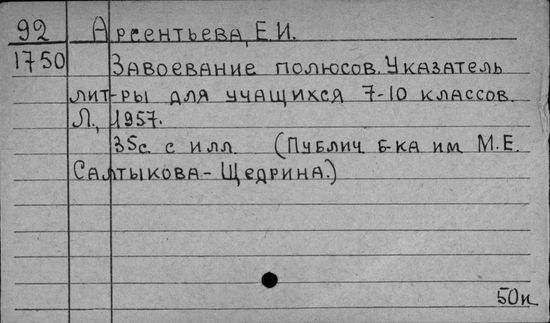 92 Арсентьева, Е.И.
1750 Завоевание полюсов. Указатель
лит-ры для учащихся 7-10 классов.
Л., 1957.
35с. с илл. (Публич. б-ка им. М.Е.
Салтыкова-Щедрина.)
50к